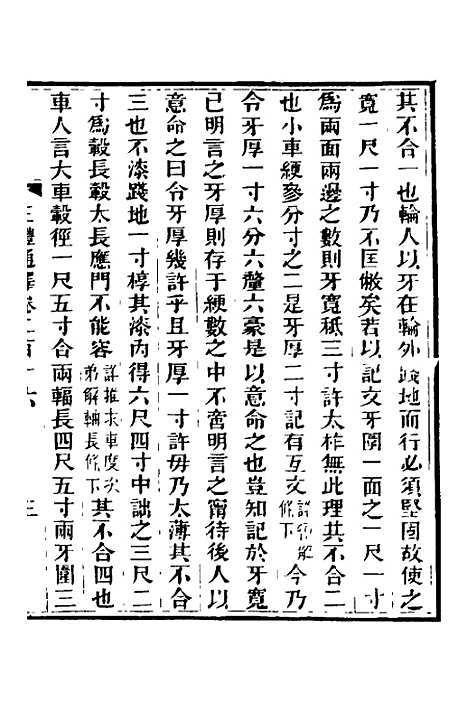 其不合一也輪人以牙在輪外踐地而行必須堅固故使之
寬一尺一寸乃不匡敝矣若以記文牙圍一面之一尺一寸
爲兩面兩邊之數則牙寬秪三寸許太柞無此理其不合二
也小車綆參分寸之二是牙厚二寸記有互文詳綆解條下今乃
令牙厚一寸六分六釐六豪是以意命之也豈知記於牙寬
已明言之牙厚則存于綆數之中不啻明言之甯待後人以
意命之曰令牙厚幾許乎且牙厚一寸許毋乃太薄其不合
三也不漆踐地一寸椁其漆內得六尺四寸中詘之三尺二
寸爲轂長轂太長應門不能容詳推求車度次弟解軸長條下其不合四也
車人言大車轂徑一尺五寸合兩輻長四尺五寸兩牙圍三
三禮通釋卷二百十六
三